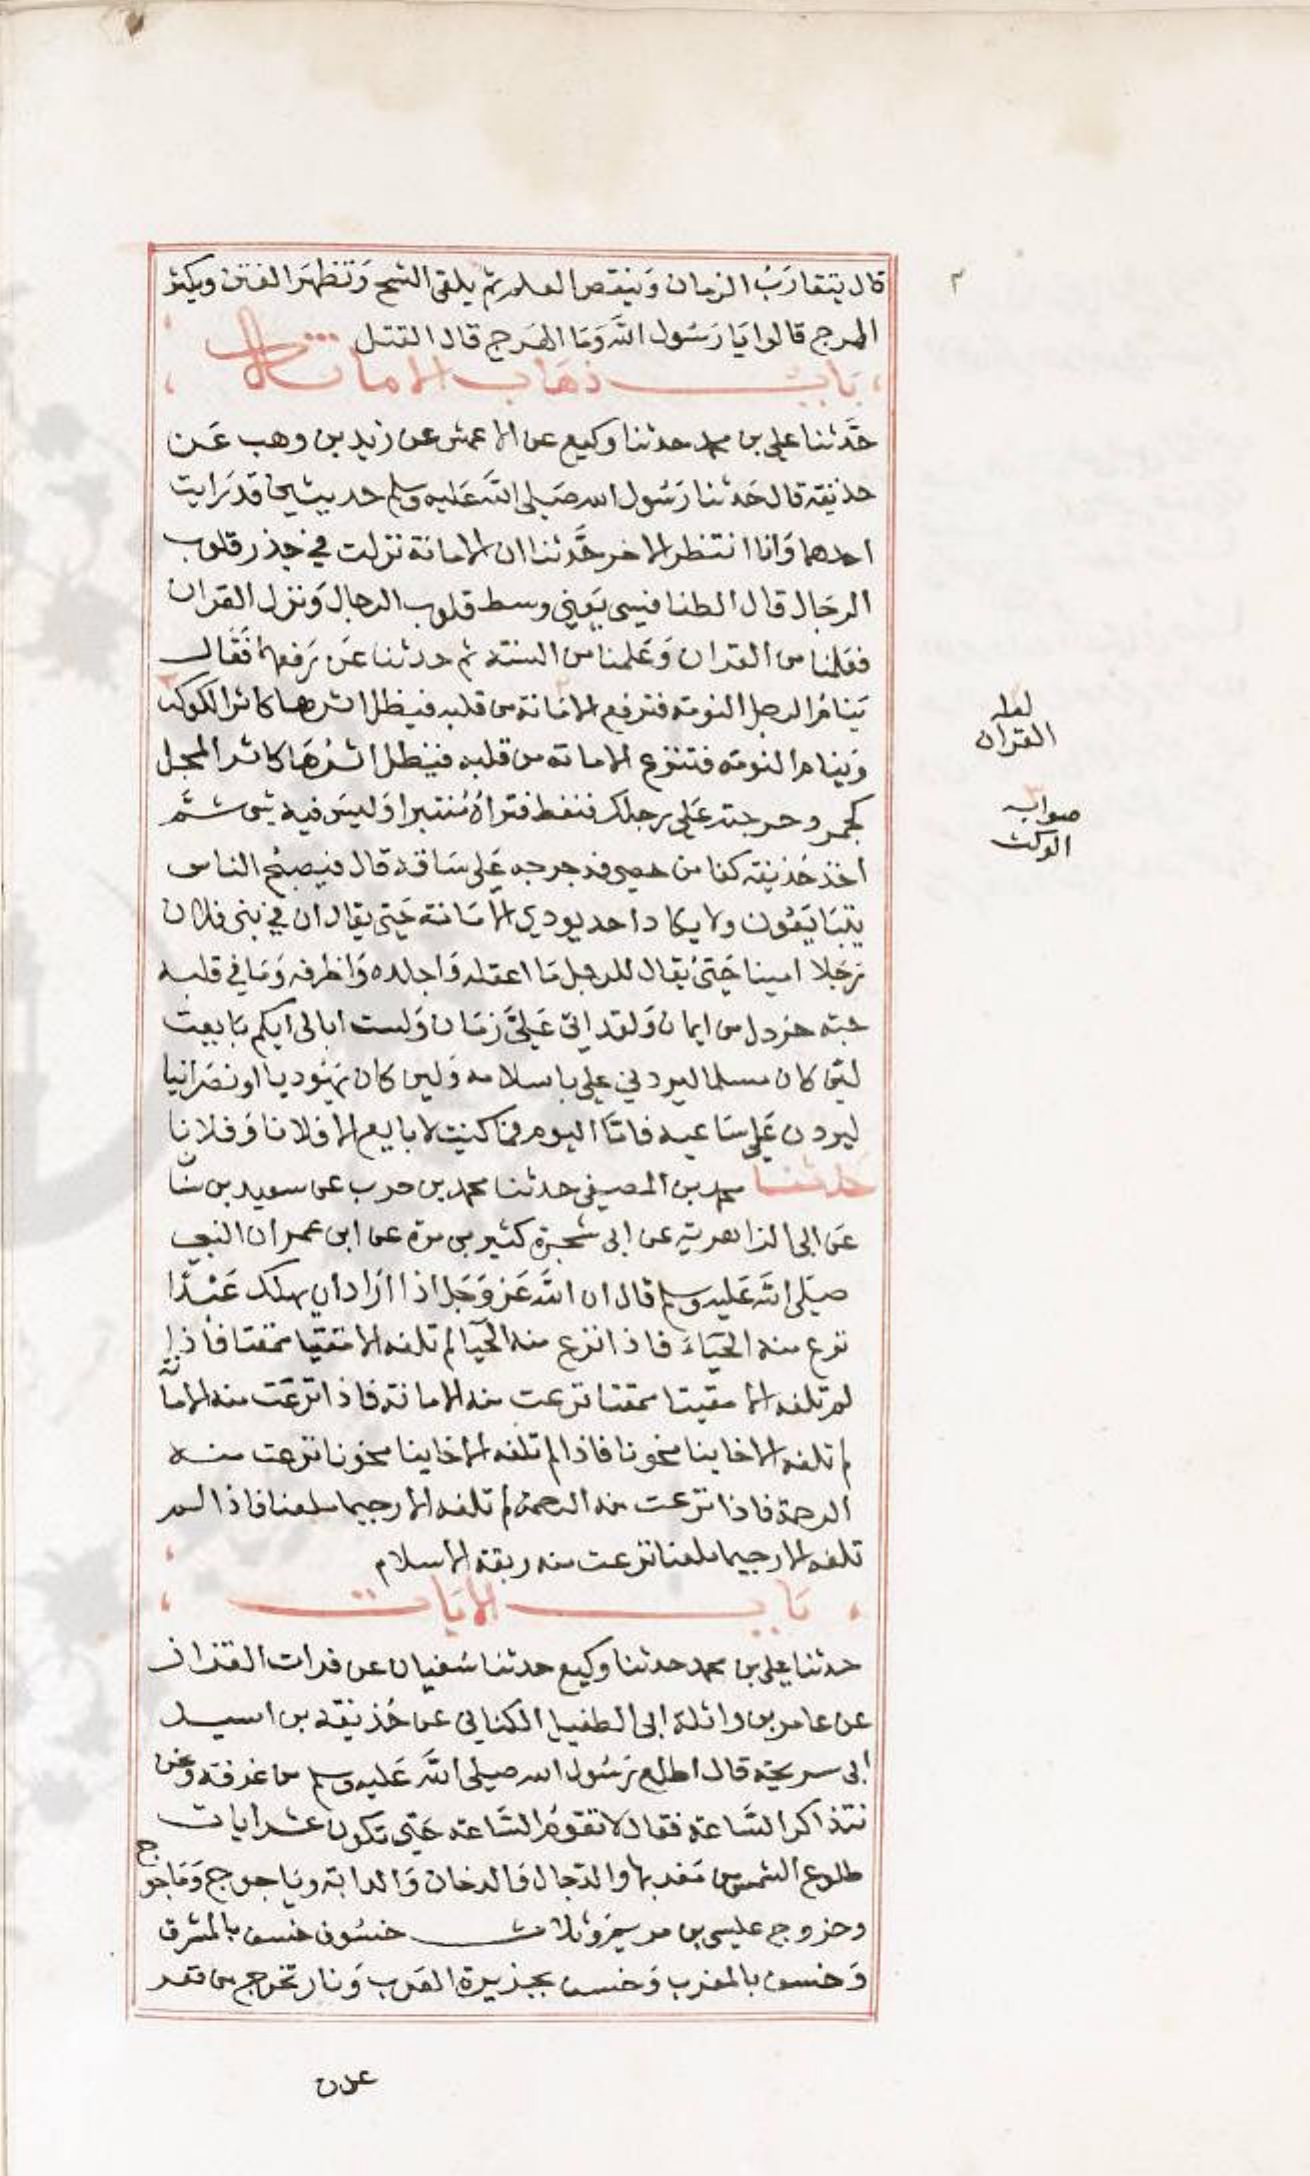 قال يتقارب الزمان وينقص العلم ثم يلقى الشح وتظهر الفتن ويكثر
الهرج قالوا يا رسول الله وما الهرج قال القتل
باب ذهاب الامانة
حدثنا علي بن محمد حدثنا وكيع عن الاعمش عن زيد بن وهب عن
حذيفة قال حدثنا رسول الله صلى الله عليه وسلم حديثين قد رايت
احدهما وانا انتظر الاخر حدثنا ان الامانة نزلت في جذر قلوب
الرجال قال الطنافسي يعني وسط قلوب الرجال ونزل القران
فعلمنا من القران وعلمنا من السنة ثم حدثنا عن رفعها فقال
ينام الرجل النومة فترفع الامانة من قلبه فيظل اثرها كاثر الكوكب
وينام النومة فتنزع الامانة من قلبه فيظل اثرها كاثر المجل
كجمر دحرجته على رجلك فنفط فتراه منتبرا وليس فيه شي ثم
اخذ حذيفة كفا من حصى فدحرجه على ساقه قال فيصبح الناس
يتبايعون ولا يكاد احد يودي الامانة حتى يقال ان في بني فلان
رجلا امينا حتى يقال للرجل ما اعقله واجلده واظرفه وما في قلبه
حبة خردل من ايمان ولقد اتى علي زمان ولست ابالي ايكم بايعت
لئن كان مسلما ليردني علي باسلامه ولين كان يهوديا او نصرانيا
ليردن علي ساعيه فاما اليوم فما كنت لابايع الا فلانا وفلانا
حدثنا محمد بن المصفى حدثنا محمد بن حرب عن سعيد بن سنا
عن ابي الزاهرية عن ابي شجرة كثير بن مرة عن ابن عمر ان النبي
صلى الله عليه وسلم قال ان الله عز وجل اذا اراد ان يهلك عبدا
نزع منه الحياء فاذا نزع منه الحيا لم تلفه الا مقيتا ممقتا فاذا
لم تلفه الا مقيتا ممقتا نزعت منه الامانة فاذا نزعت منه الامانة
لم تلفه الا خاينا مخونا فاذا لم تلفه الا خاينا مخونا نزعت منه
الرحمة فاذا نزعت منه الرحمة لم تلفه الا رجيما ملعنا فاذا لم
تلفه الا رجيما ملعنا نزعت منه ربقة الاسلام
باب الايات
حدثنا علي بن محمد حدثنا وكيع حدثنا سفيان عن فرات القزاز
عن عامر بن واثلة ابي الطفيل الكناني عن حذيفة بن اسيد
ابي سريحة قال اطلع رسول الله صلى الله عليه وسلم من غرفة ونحن
نتذاكر الساعة فقال لا تقوم الساعة حتى تكون عشر ايات
طلوع الشمس من مغربها والدجال والدخان والدابة وياجوج وماجوج
وخروج عيسى بن مريم وثلاث خسوف خسف بالمشرق
وخسف بالمغرب وخسف بجزيرة العرب ونار تخرج من قعر
عدن
لعله
القران
صوابه
الوكت